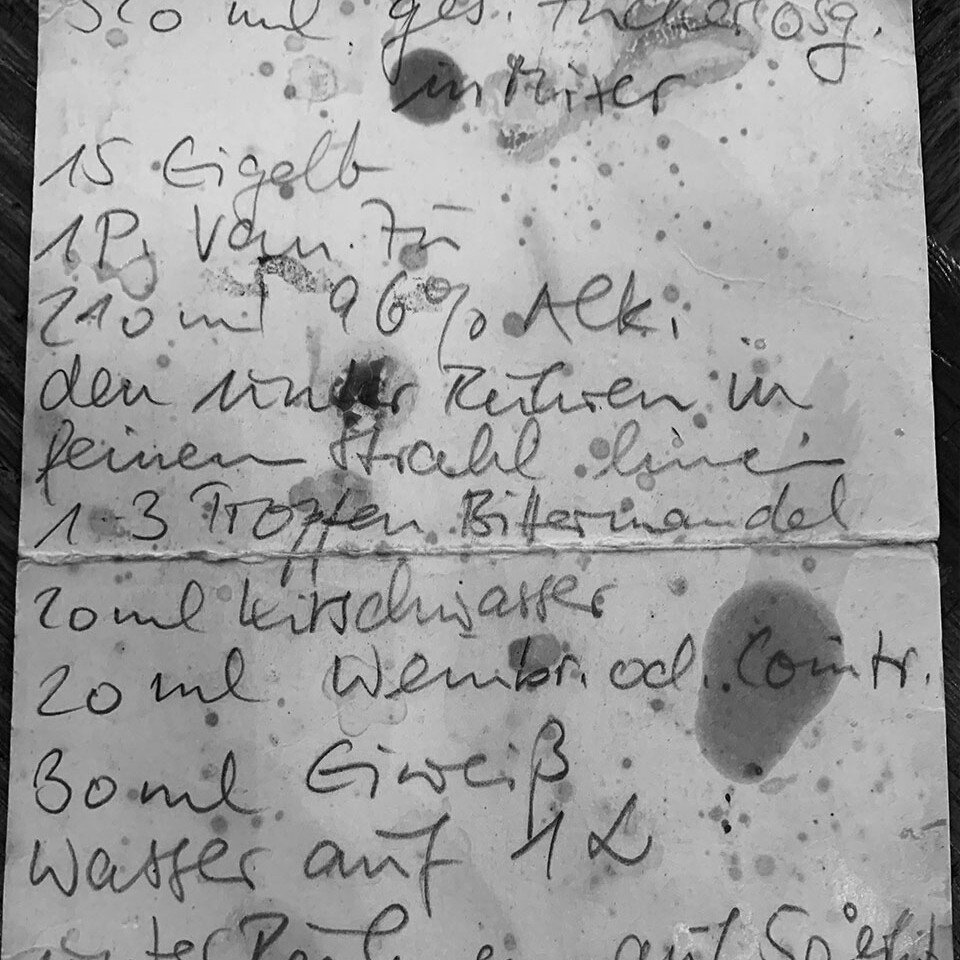 ml ges. Zuckerlösg.
im Mixer
15 Eigelb
1P. Van. Zu
210 ml 96% Alk.
den unter Rühren in
feinen Strahl hinein
1-3 Tropfen Bittermandel
20ml Kirschwasser
20 ml Weinbr. od. Cointr.
30ml Eiweiß
Wasser auf 1L
unter Rühren auf